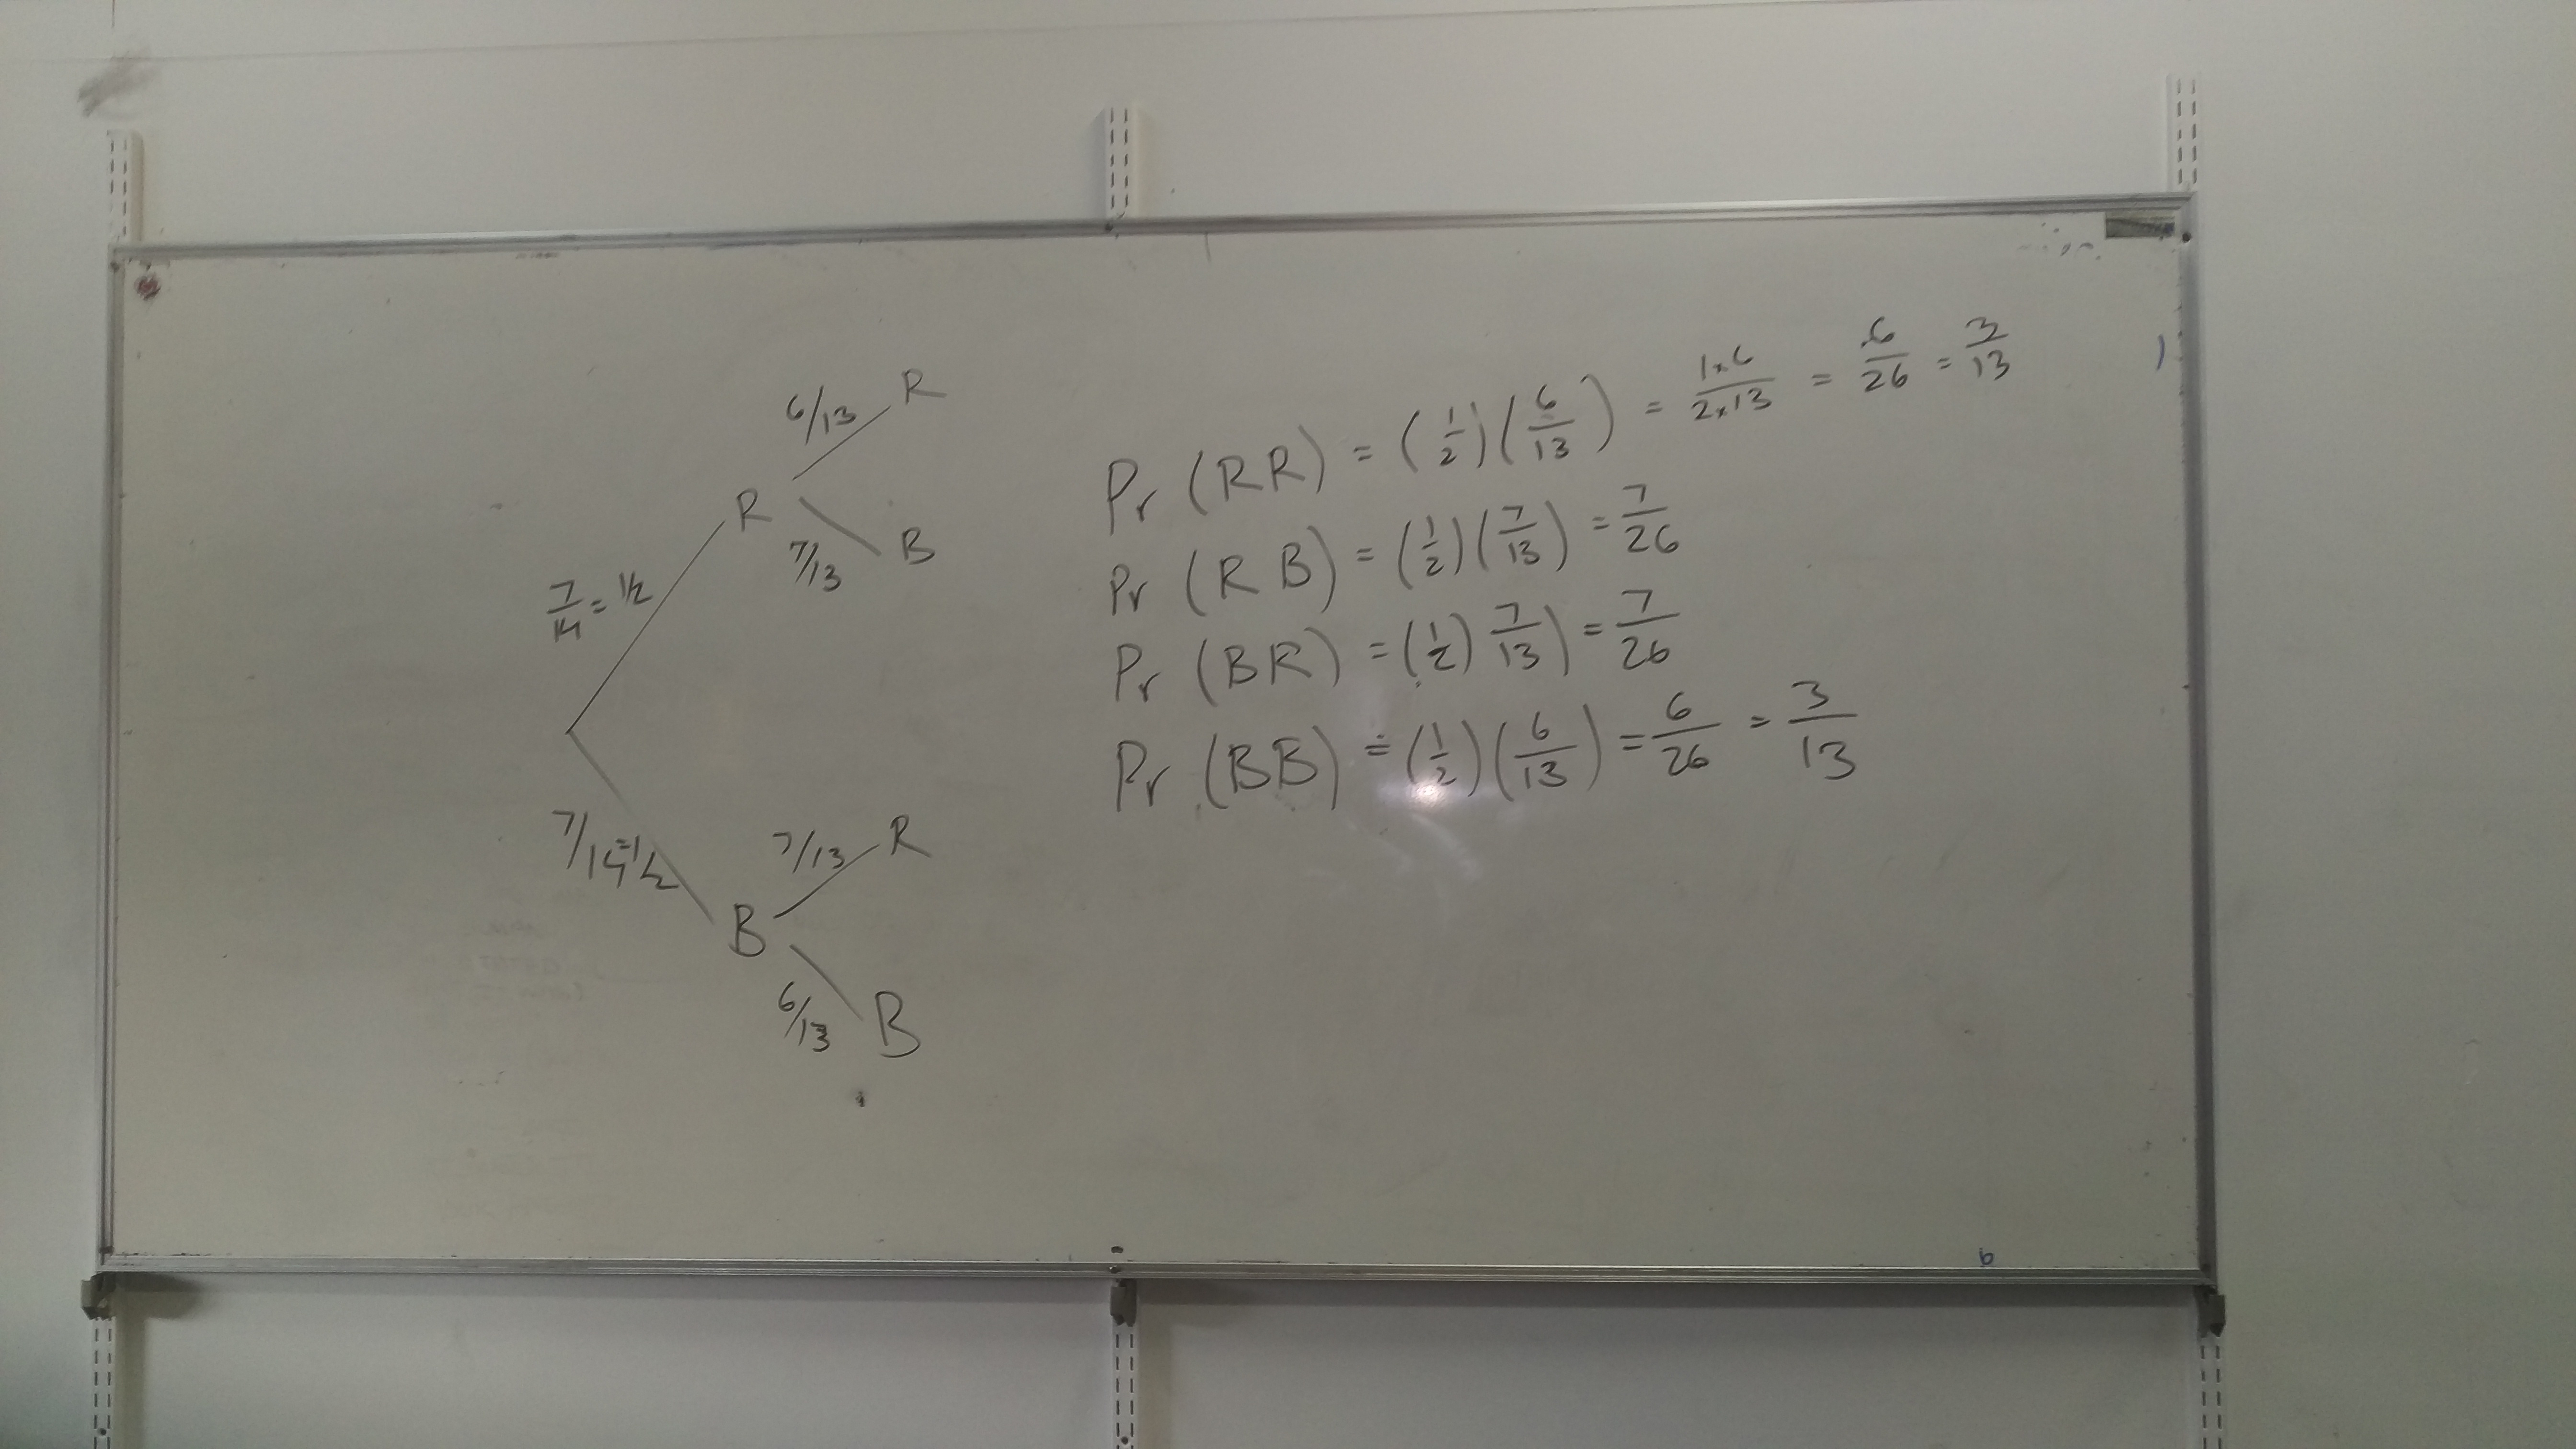 6/13 R
R
7/13 B
7/14 = 1/2
7/14 = 1/2
7/13 R
B
6/13 B
Pr (RR) = (1/2)(6/13) = 1x6/2x13 = 6/26 = 3/13
Pr (RB) = (1/2)(7/13) = 7/26
Pr (BR) = (1/2) 7/13) = 7/26
Pr (BB) = (1/2)(6/13) = 6/26 = 3/13
b